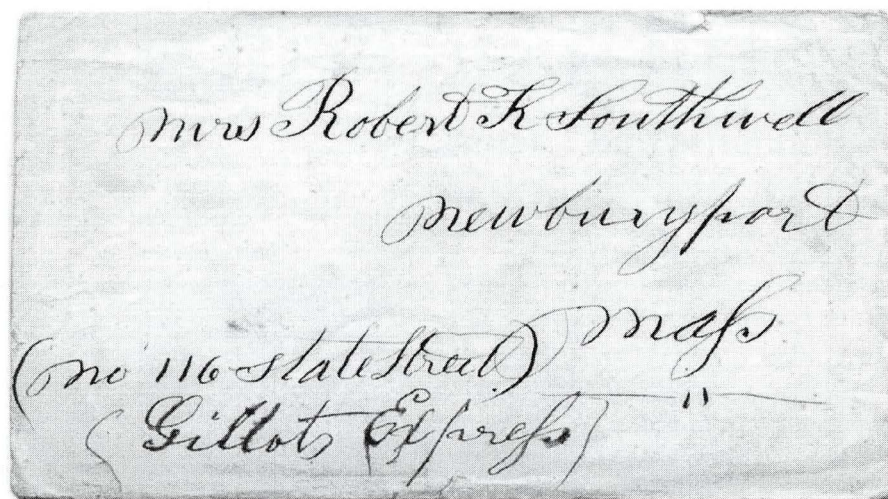 Mrs Robert K Southwell
Newburyport
Mass
(No 116 State Street)
"
(Gillots Express)